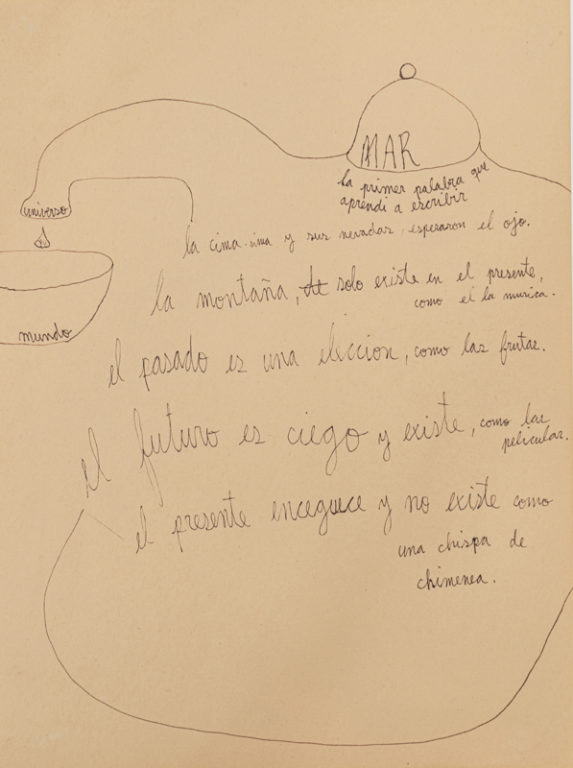 MAR
la primer palabra que
aprendi a escribir
universo
la cima sima y sus nevadas, esperaron el ojo.
la montaña, solo existe en el presente,
como el la musica.
mundo
el pasado es una eleccion, como las frutas.
el futuro es ciego y existe, como las
peliculas.
el presente enceguece y no existe como
una chispa de
chimenea.